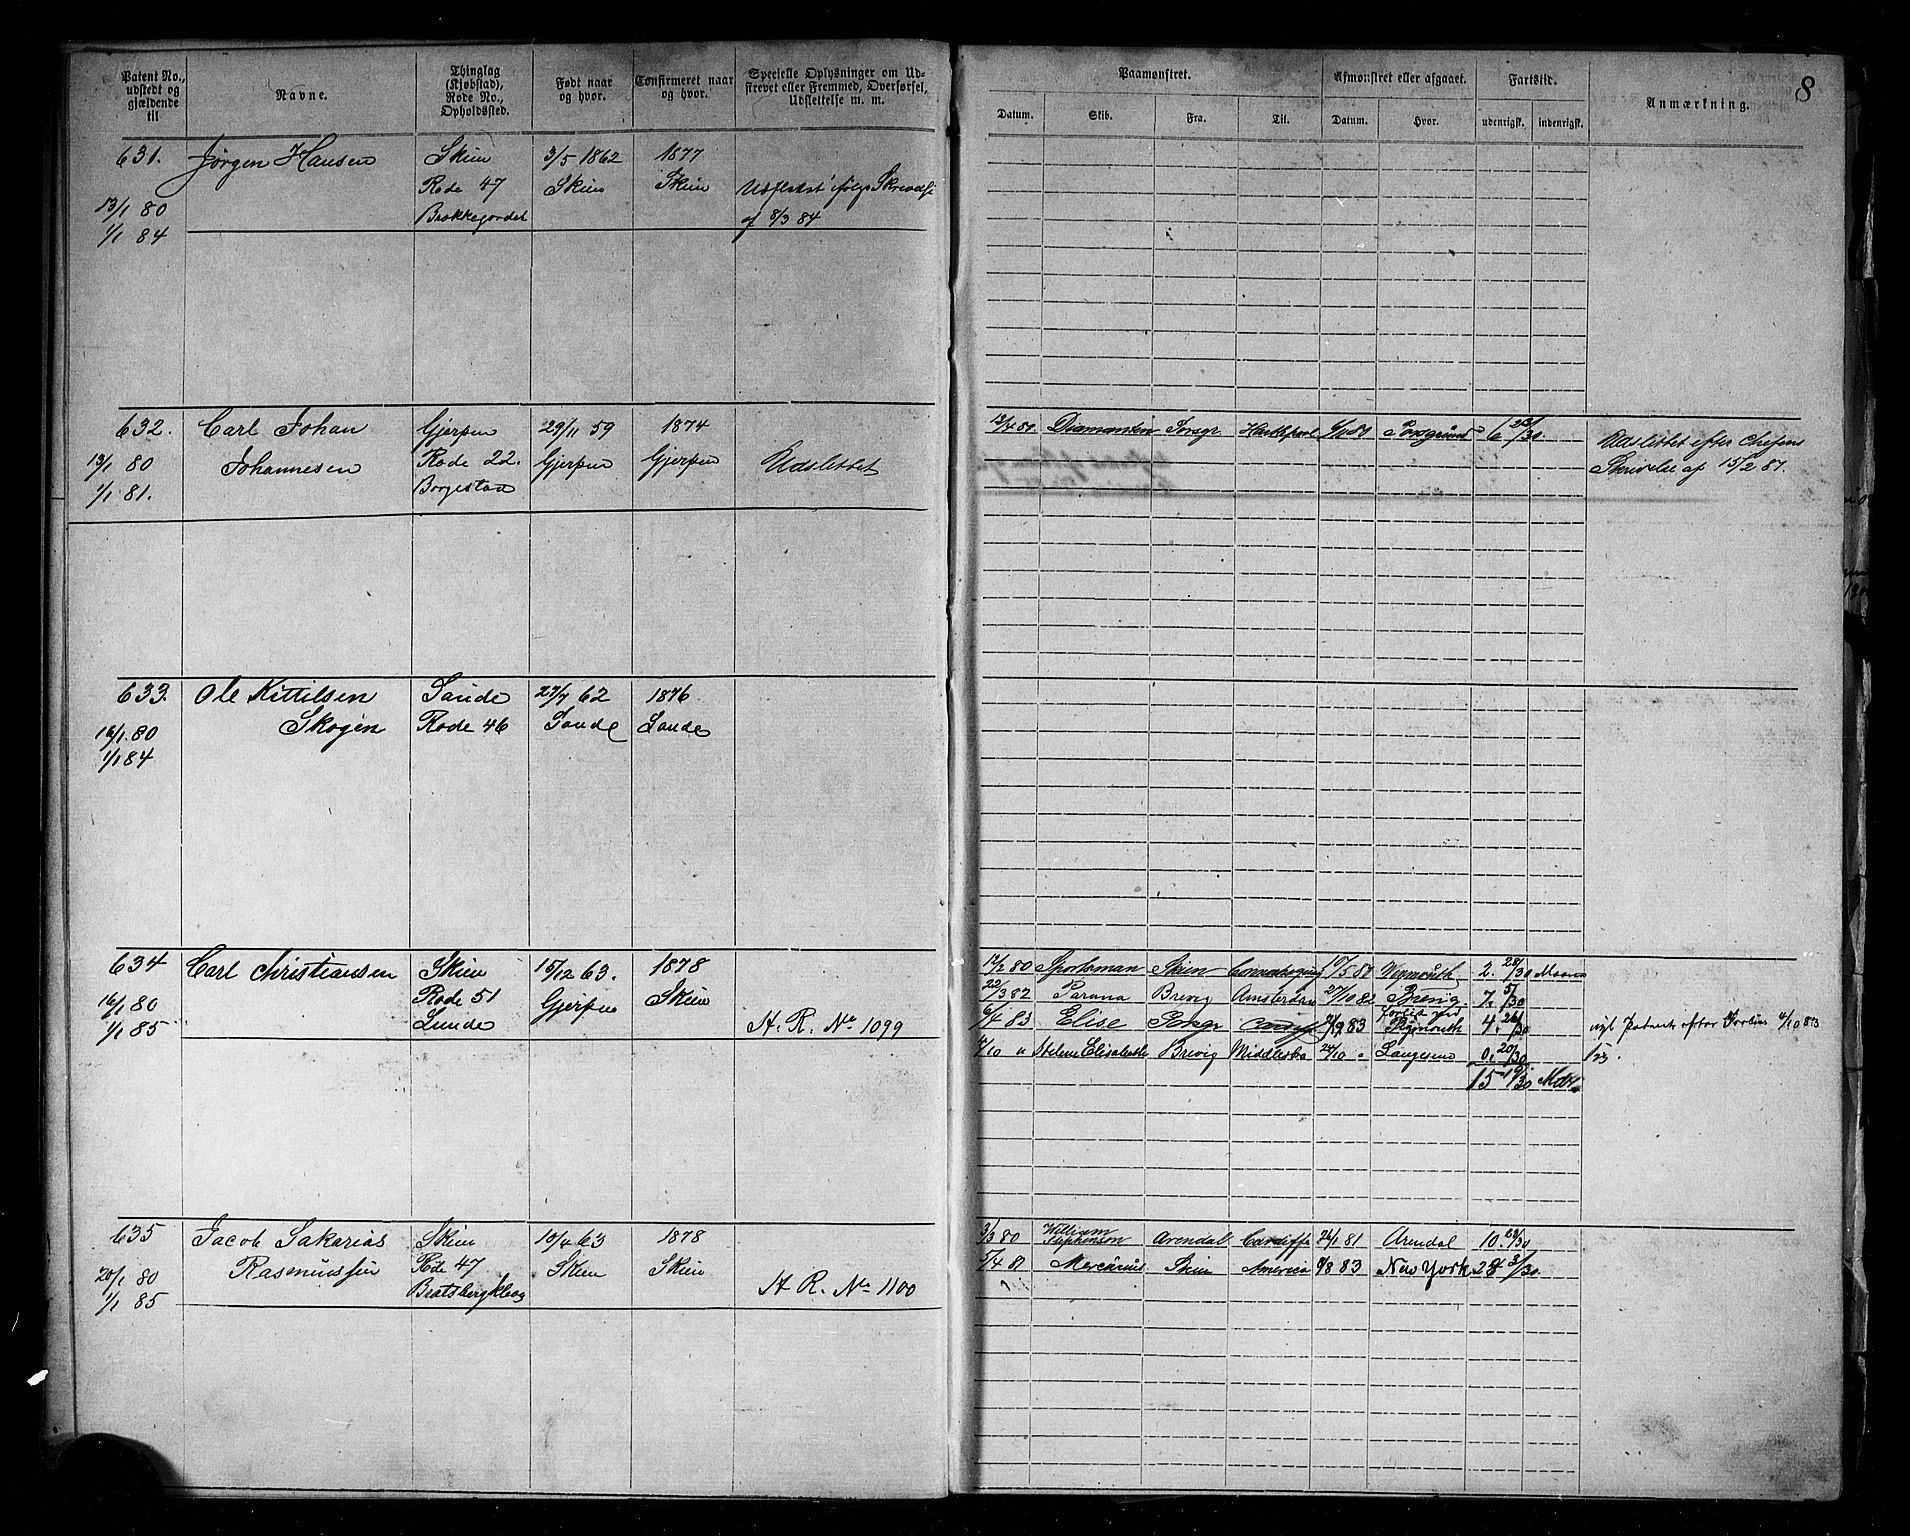 Patent No., udstedt og gjældende til
Navne.
Thinglag (Kjøbstad), Rode No., Opholdssted.
Født naar og hvor.
Confirmeret naar og hvor.
Specielle Oplysninger om Udstrevet eller Fremmed, Overførsel, Udslettelse m. m.
Paamønstret.
Afmønstret eller afgaaet.
Fartstid.
Anmærkning.
8
Datum.
Skib.
Fra.
Til.
Datum.
Hvor.
udenrigsk.
indenrigsk.
631. Jørgen Hansen Skien 3/5 1862 1877
Rode 47 Skien Skien
13/1 80 Brækkegordet af 8/3 84
1/1 84
632. Carl Johan Gjerpen 29/11 59 1874 Diamanten Porsgr Porsgrund 6 23/30
13/1 80 Johannesen Rode 22. Gjerpen Gjerpen Udslettet Udslettet efter Chefens
1/1 81. Borgestad Skrivelse af 15/2 81.
633. Ole Kittilsen Saude 27/7 62 1876
16/1 80 Skogen Rode 46 Saude Saude
1/1 84
634 Carl Christiansen Skien 15/12 63. 1878 Sportsman Skien 2. 28/30
16/1 80 Rode 51 Gjerpen Skien 22/3 82 Parana Brevig Amsterdam 27/10 82 Brevig 7. 5/30
1/1 85 Lunde H. R. No 1099 6/4 83 Elise Porsgr Cardiff Plymouth 4. 26/30
4/10 " Helene Elisabeth Brevig Middlesbro 24/10 " Langesund 0. 20/30
15 19/30 Mdr.
635 Jacob Sakarias Skien 10/4 63 1878 3/3 80 William Stephenson Arendal Cardiff 24/1 81 Arendal 10.
20/1 80 Rasmussen Rode 47 Skien Skien 5/4 81 Mercurius Skien America 8/8 83 New York 28 3/30
1/1 85 Bratsbergkleva H R. No 1100